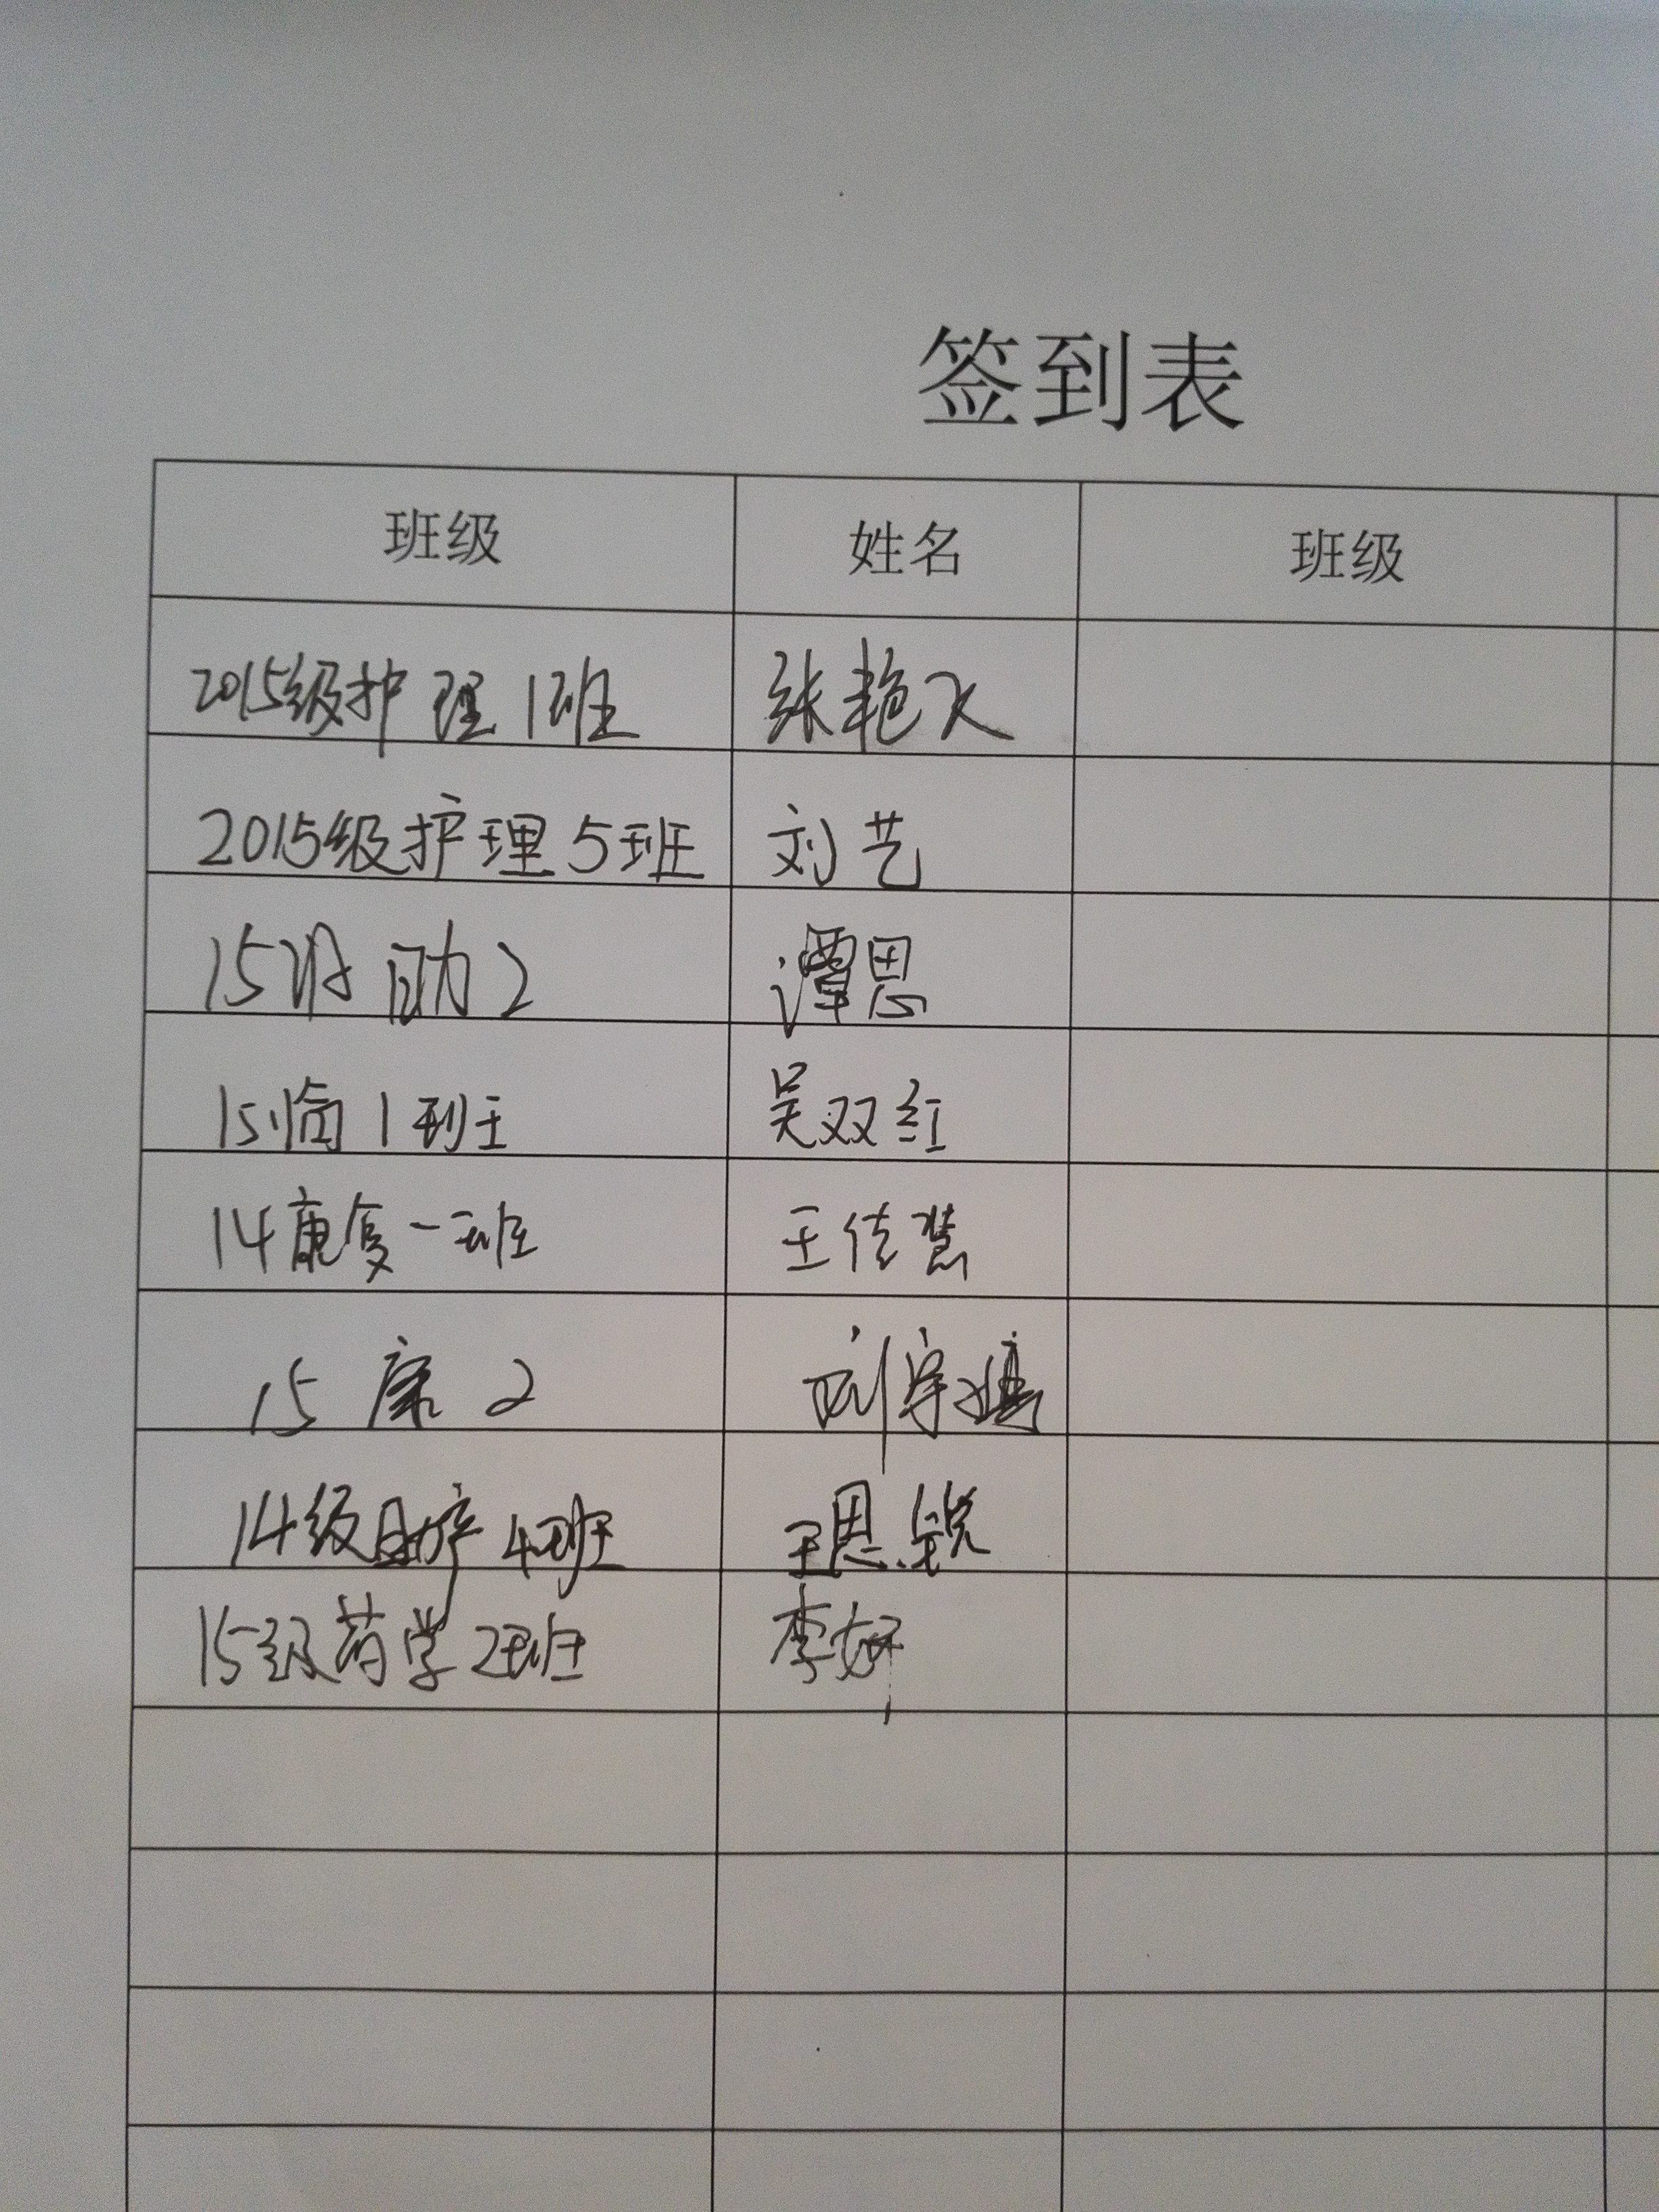 签到表
班级 姓名 班级
2015级护理1班 张艳飞
2015级护理5班 刘艺
15 助2 谭思
15临1班 吴双红
14康复一班 王佳慧
15 康 2 刘宇
14级助产4班 王思锐
15级药学2班 李妍